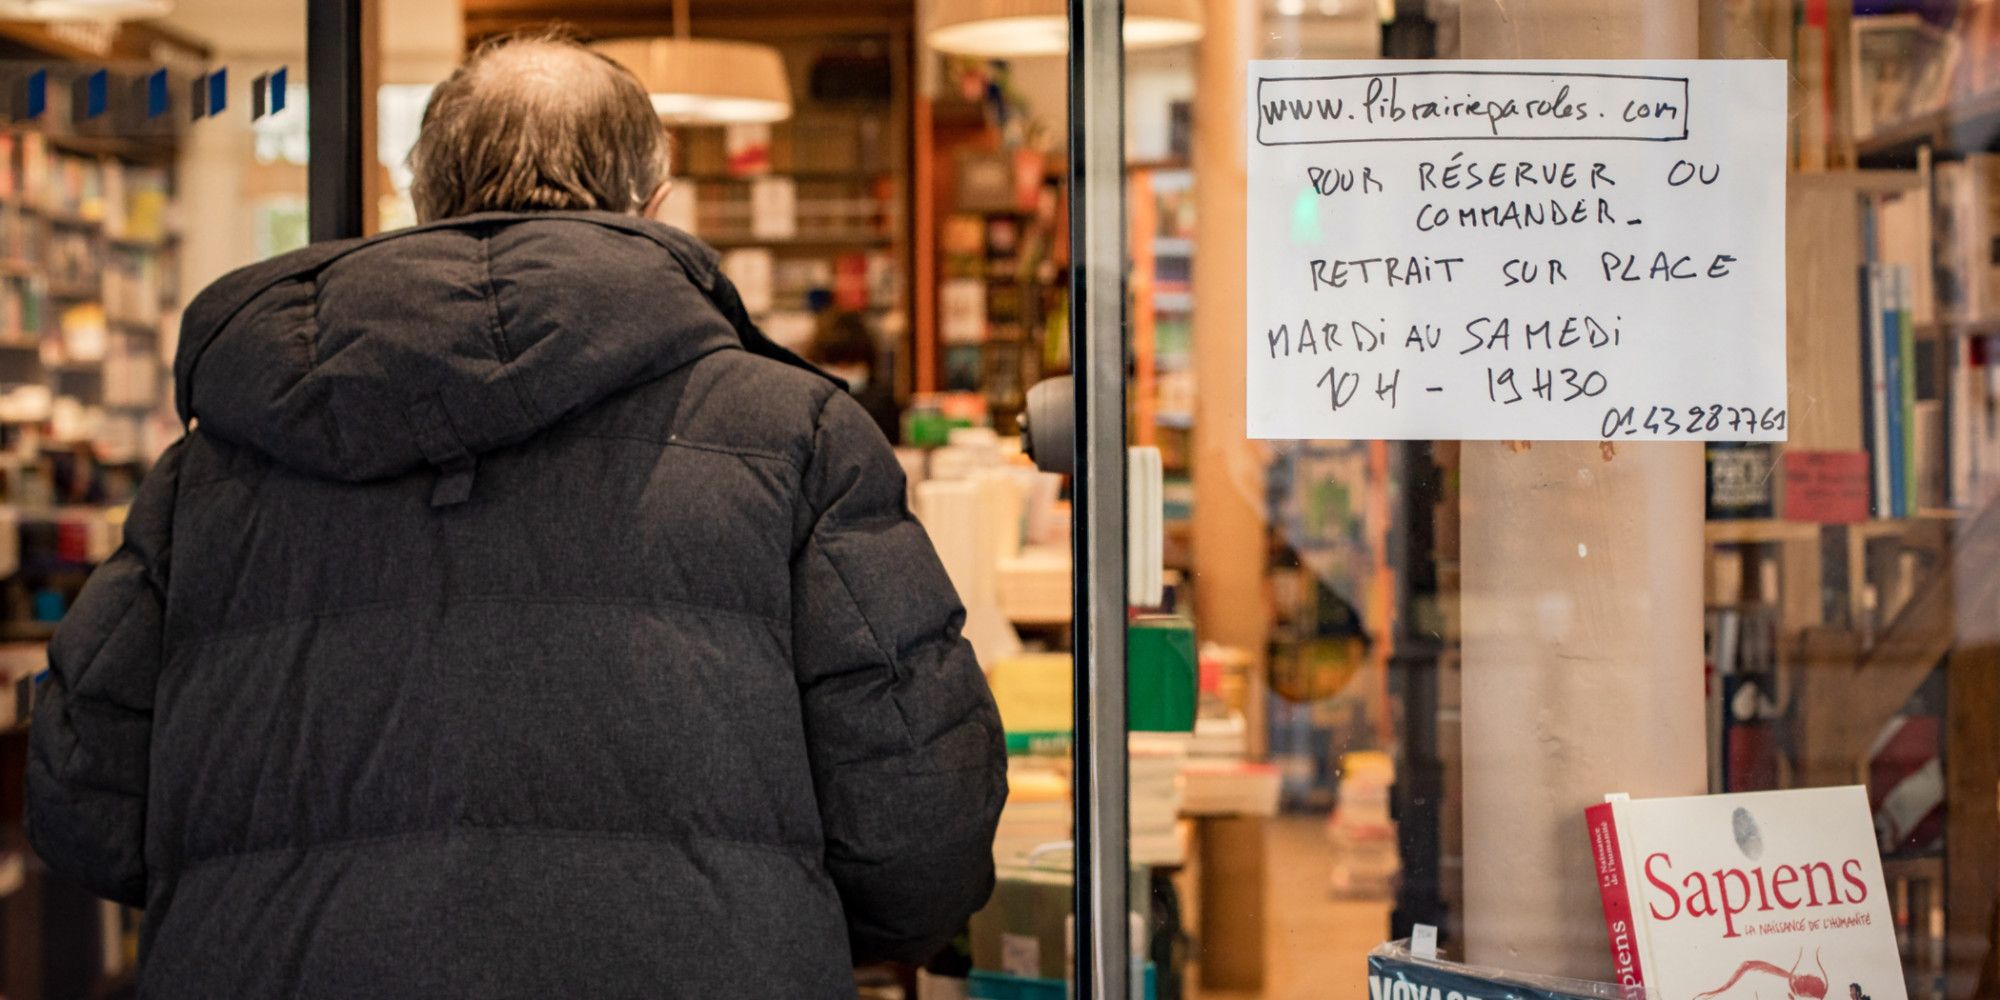 www.librairieparoles.com
POUR RÉSERVER OU
COMMANDER_
RETRAIT SUR PLACE
MARDI AU SAMEDI
10H - 19H30
0143287761
La Naissance
de l'humanité
Sapiens
LA NAISSANCE DE L'HUMANITÉ